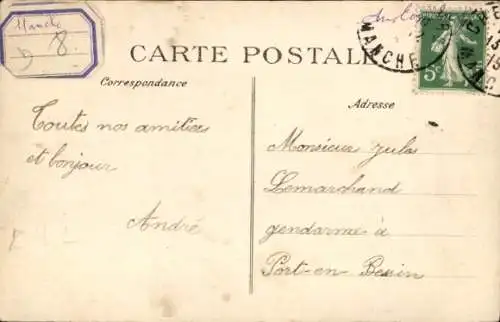 Manche
8.
CARTE POSTALE
MANCHE
5
Correspondance
Adresse
Toutes nos amitiés
et bonjour
André
Monsieur Jules
Lemarchand
gendarme à
Port-en-Bessin